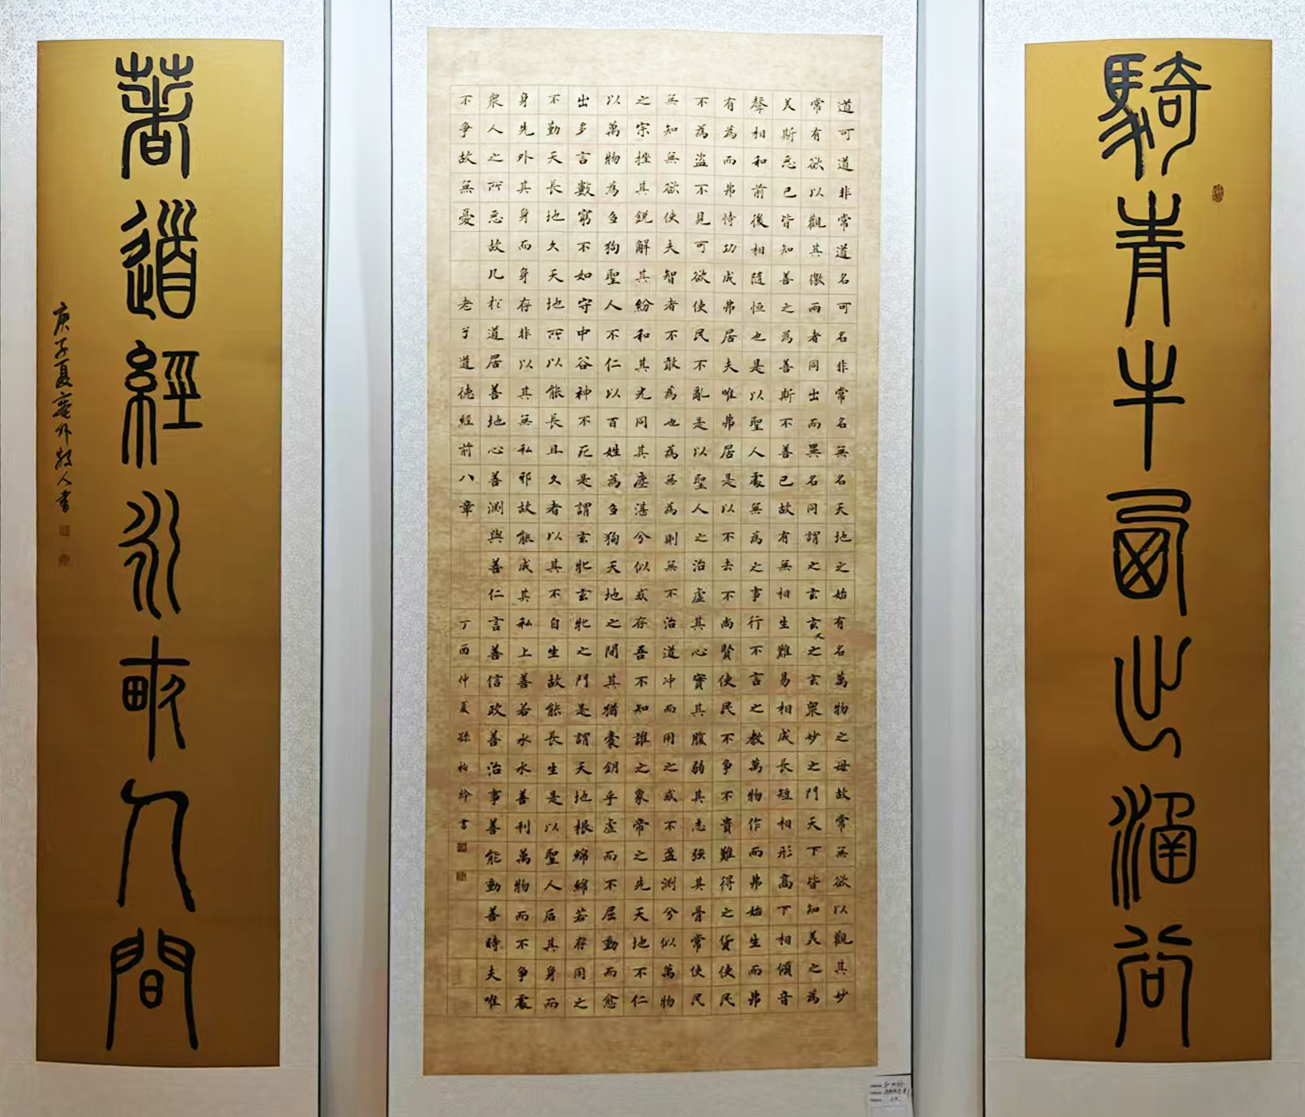 騎青牛西出涵谷
道可道非常道名可名非常名無名天地之始有名萬物之母故常無欲以觀其妙
常有欲以觀其徼而者同出而異名同謂之玄玄之又玄衆妙之門天下皆知美之為
美斯惡已皆知善之為善斯不善已故有無相生難易相成長短相形高下相傾音
聲相和前後相隨恒也是以聖人處無為之事行不言之教萬物作而弗始生而弗
有為而弗恃功成弗居夫唯弗居是以不去不尚賢使民不爭不貴難得之貨使民
不為盜不見可欲使民不亂是以聖人之治虛其心實其腹弱其志強其骨常使民
無知無欲使夫智者不敢為也為無為則無不治道冲而用之或不盈淵兮似萬物
之宗挫其銳解其紛和其光同其塵湛兮似或存吾不知誰之象帝之先天地不仁
以萬物為芻狗聖人不仁以百姓為芻狗天地之間其猶橐鈅乎虛而不屈動而愈
出多言數窮不如守中谷神不死是謂玄牝玄牝之門是謂天地根綿綿若存用之
不勤天長地久天地所以能長且久者以其不自生故能長生是以聖人后其身而
身先外其身而身存非以其無私邪故能成其私上善若水水善利萬物而不爭處
衆人之所惡故几於道居善地心善淵與善仁言善信政善治事善能動善時夫唯
不爭故無憂 老子道德經前八章 丁酉仲夏孫柏書
著道經永人間
庚子夏塞外牧人書